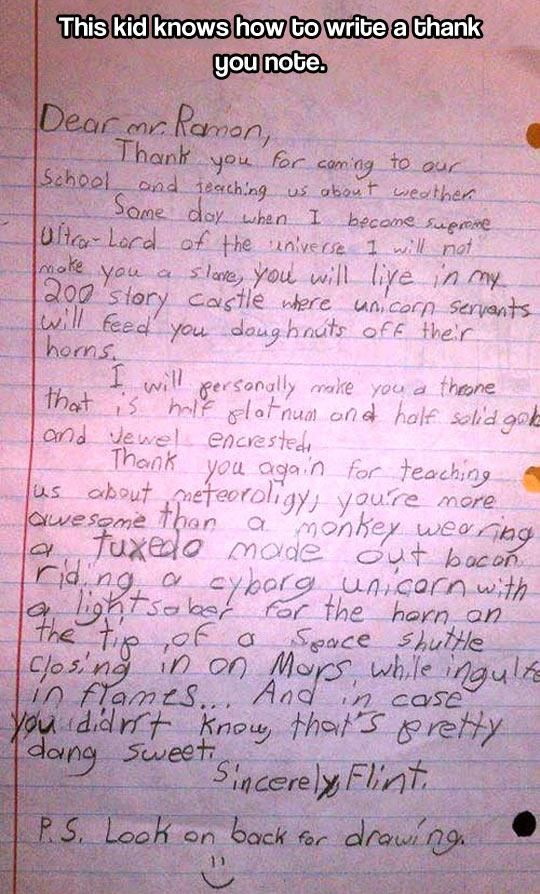 This kid knows how to write a thank
you note.
Dear mr. Ramon,
Thank you for coming to our
School and teaching us about weather.
Some day when I become supreme
Ultra-Lord of the universe I will not
make you a slave, you will live in my
200 story castle where unicorn servants
will feed you doughnuts off their
horns.
I will personally make you a throne
that is half platnum and half solid gold
and Jewel encrested.
Thank you again for teaching
us about meteoroligy, you're more
awesome than a monkey wearing
a tuxedo made out bacon
riding a cyborg unicorn with
a lightsaber for the horn on
the tip of a Space shuttle
closing in on Mars while ingulfed
in flames... And in case
you didn't know, that's pretty
dang sweet.
Sincerely, Flint.
P.S. Look on back for drawing.